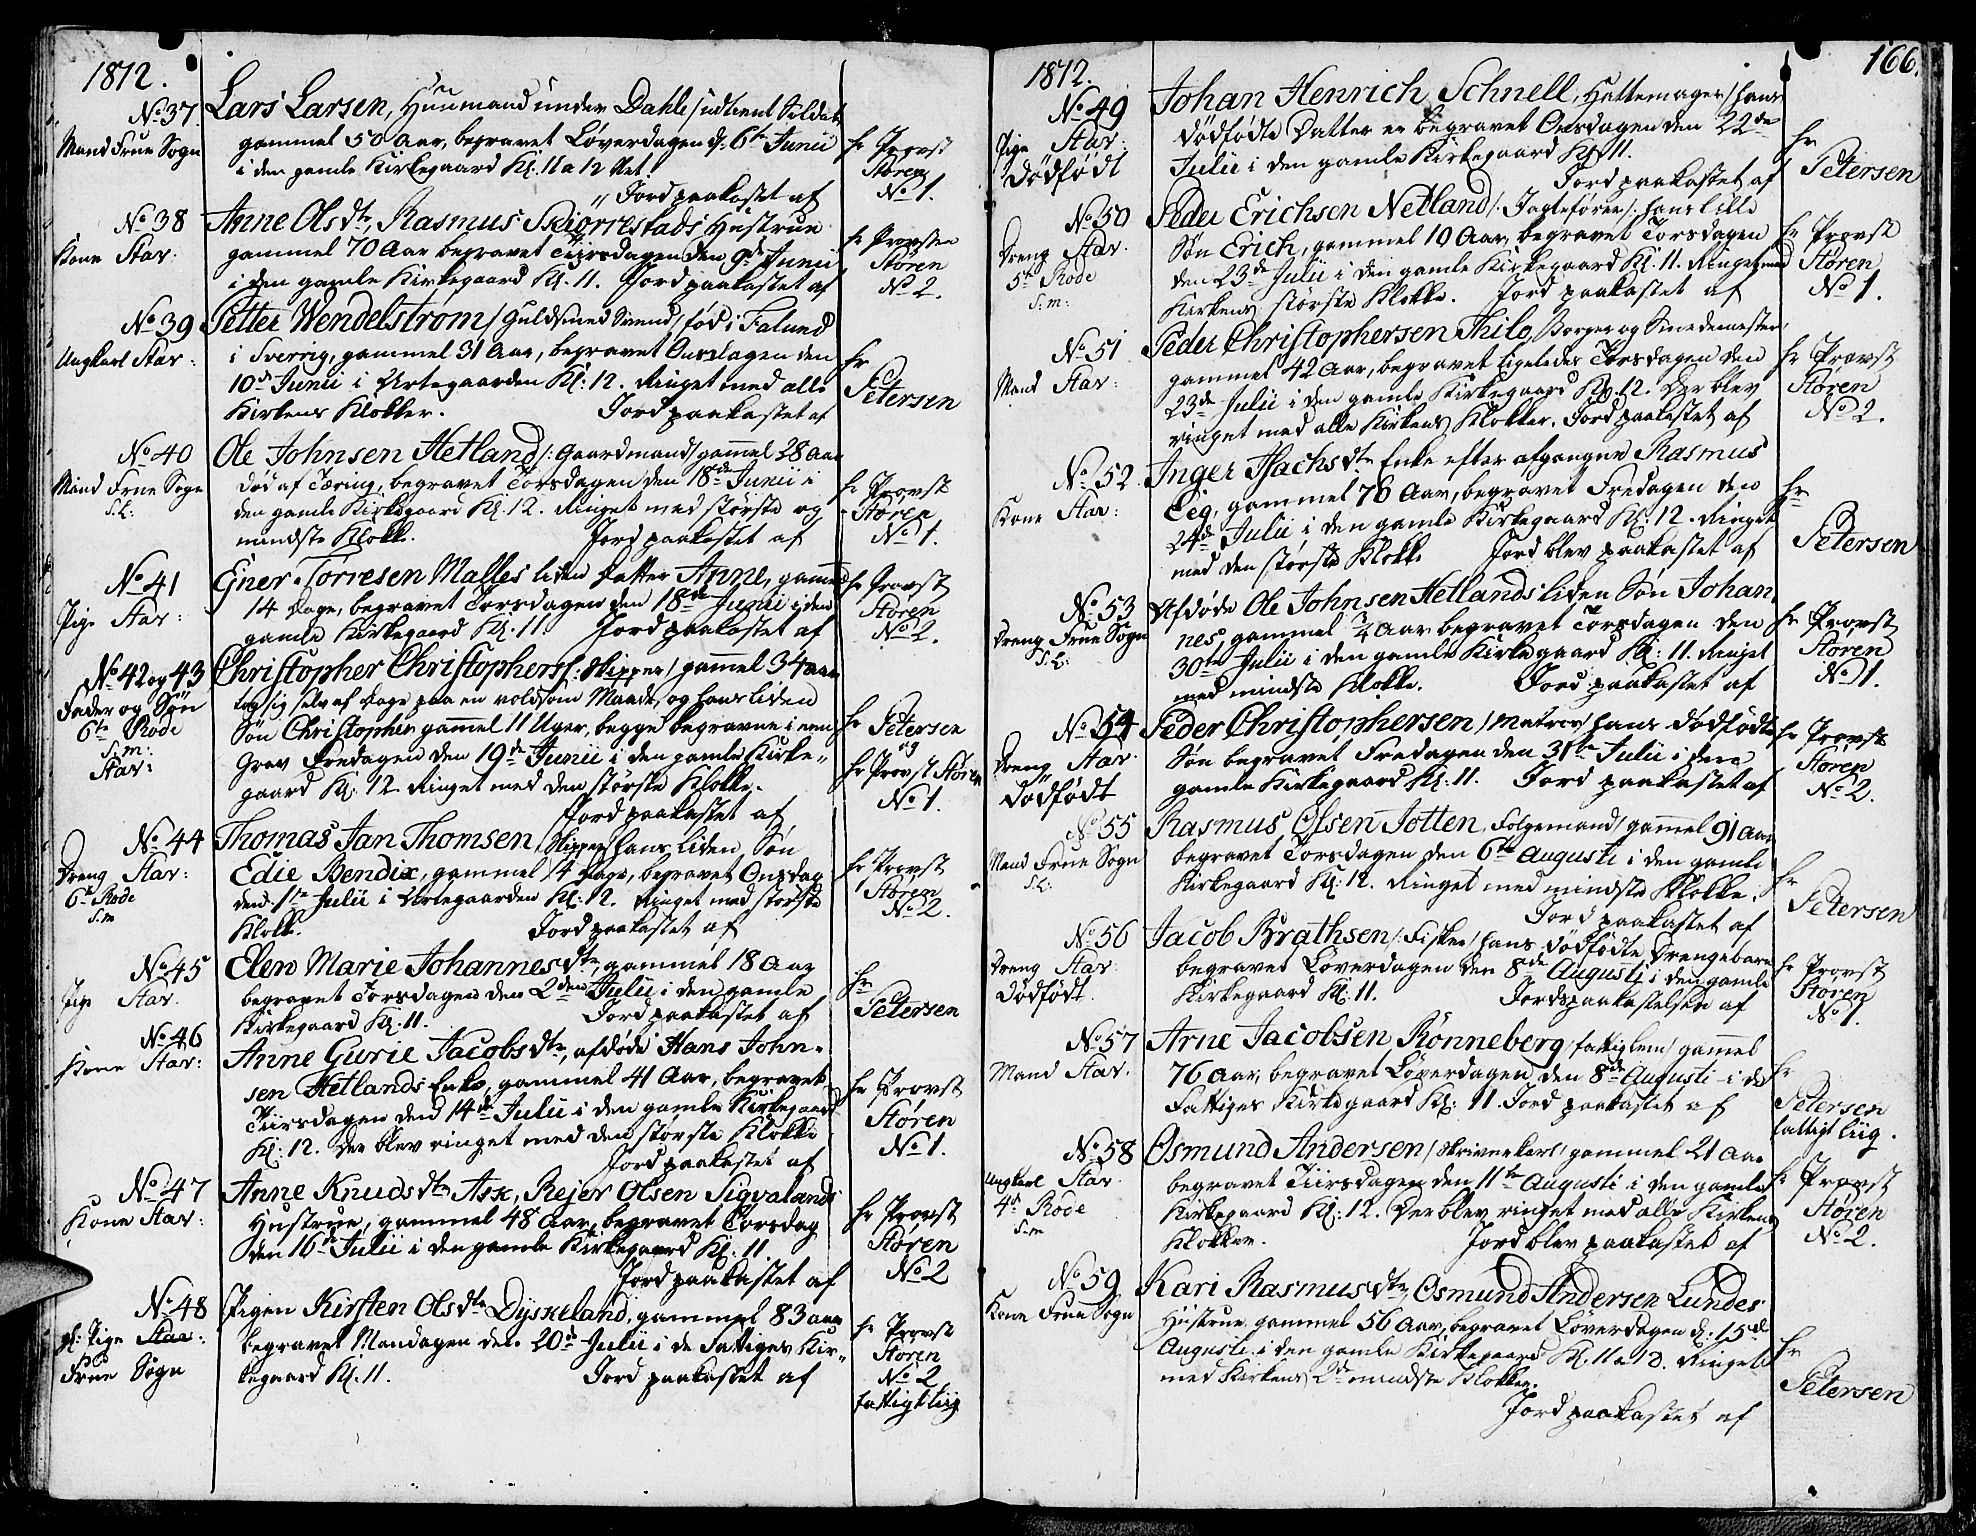 1812.
No 37
Mand Frue Sogn
Lars Larsen, Huusmand under Dahle /: udtient Soldat
gammel 50 Aar, begravet Løverdagen d. 6te Junii
i den gamle Kirkegaard Kl. 11 a 12 Slet.
Jord paakastet af
hr Provst
Støren
No 1.
No 38
Kone Stav:
Anne Olsdtr, Rasmus Skiorrestads Hustrue
gammel 70 Aar begravet Tiirsdagen den 9de Junii
i den gamle Kirkegaard Kl. 11. Jord paakastet af
hr Provsten
Støren
No 2.
No 39
Ungkarl Stav:
Petter Wendelstrom / Guldsmed Svend / fød i Falund
i Sverrig, gammel 31 Aar, begravet Onsdagen den
10de Junii i Urtegaarden Kl: 12. Ringet med alle
Kirkens Klokker. Jord paakastet af
hr
Petersen
No 40
Mand Frue Sogn
S.k:
Ole Johnsen Hetland /: Gaardmand / gamel 28 Aar
død af Tæring, begravet Torsdagen den 18de Junii i
den gamle Kirkegaard Kl. 12. Ringet med største og
mindste Klokke. Jord paakastet af
hr Provst
Støren
No 1.
No 41
Pige Stav:
Gner Torresen Malles liden Datter Anne, gammel
14 Dage, begravet Torsdagen den 18de Junii i den
gamle Kirkegaard Kl. 11. Jord paakastet af
hr Provst
Støren
No 2.
No 42 og 43
Fader og Søn
6te Rode
S.m:
Stav:
Christopher Christophers /: Skipper / gammel 34 aar
tog sig selv af Dage paa en voldsom Maade, og hans liden
Søn Christopher gammel 11 Uger, begge begravne i een
Grav Fredagen den 19de Junii i den gamle Kirke-
gaard Kl: 12 Ringet med den største Klokke.
Jord paakastet af
hr Petersen
og
hr Provst Støren
No 1.
No 44
Dreng Stav:
6te Rode
S.m
Thomas Jan Thomsen, Skipper / hans liden Søn
Edie Bendix, gammel 14 Dage, begravet Onsdag
den 1te Julii i Urtegaarden Kl: 12. Ringet med største
Klokke. Jord paakastet af
hr Provst
Støren
No 2.
No 45
Pige Stav.
Elen Marie Johannesdtr, gammel 18 Aar
begravet Torsdagen den 2den Julii i den gamle
Kirkegaard Kl. 11. Jord paakastet af
hr
Petersen
No 46
Kone Stav:
Anne Gurie Jacobsdtr, afdøde Hans John-
sen Hetlands Enke, gammel 41 Aar, begravet
Tiirsdagen den 14de Julii i den gamle Kirkegaard
Kl: 12. Der blev ringet med den største Klokke
Jord paakastet af
hr Provst
Støren
No 1.
No 47
Kone Stav:
Anne Knudsdtr Ask, Rejer Olsen Sigvalands
Hustrue, gammel 48 Aar, begravet Torsdag
den 16de Julii i den gamle Kirkegaard Kl: 11.
Jord paakastet af
hr Provst
Støren
No 2
No 48
gl: Pige Stav:
Frue Sogn
Pigen Kirsten Olsdtr Dyskeland, gammel 83 aar
begravet Mandagen den 20de Julii i de Fattiges Kir-
kegaard Kl. 11. Jord paakastet af
hr Provst
Støren
No 2
fattigt liig
166.
1812.
No 49
Pige Stav:
Dødfødt
Johan Henrich Schnell, Hattemager / hans
dødfødte Datter er begravet Onsdagen den 22de
Julii i den gamle Kirkegaard Kl. 11.
Jord paakastet af
hr
Petersen
No 50
Dreng Stav.
5te Rode
S.m:
Peder Erichsen Netland /: Jagtefører /: hans lille
Søn Erich, gammel 10 Aar, begravet Torsdagen
den 23de Julii i den gamle Kirkegaard Kl. 11. Ringet med
Kirkens største Klokke. Jord paakastet af
hr Provst
Støren
No 1.
No 51
Mand Stav:
Peder Christophersen Thilo, / Borger og Smedemester /
gammel 42 Aar, begravet ligeledes Torsdagen den
23de Julii i den gamle Kirkegaard Kl. 12. Der blev
ringet med alle Kirkens Klokker. Jord paakastet af
hr Provst
Støren
No 2.
No 52
Kone Stav:
Inger Isachsdtr Enke efter afgangne Rasmus
Eeg, gammel 76 Aar, begravet Fredagen den
24de Julii i den gamle Kirkegaard Kl: 12. Ringet
med den største Klokke Jord blev paakastet af
hr
Petersen
No 53
Dreng Frue Sogn
S.k:
Afdøde Ole Johnsen Hetlands liden Søn Johan-
nes, gammel 1/4 Aar begravet Torsdagen den
30te Julii i den gamle Kirkegaard Kl: 11. Ringet
med mindste Klokke. Jord paakastet af
hr Provst
Støren
No 1.
No 54
Dreng Stav.
Dødfødt
Peder Christophersen / Matros / hans dødfødte
Søn begravet Fredagen den 31te Julii i den
gamle Kirkegaard Kl: 11. Jord paakastet af
hr Provst
Støren
No 2.
No 55
Mand Frue Sogn
S.k:
Rasmus Olsen Jotten, Folgemand / gamel 91 Aar
begravet Torsdagen den 6te Augusti i den gamle
Kirkegaard Kl: 12. Ringet med mindste Klokke.
Jord paakastet af
hr
Petersen
No 56
Dreng Stav
Dødfødt.
Jacob Brathsen /: Fisker / hans dødfødte Drengebarn
begravet Løverdagen den 8de Augusti i den gamle
Kirkegaard Kl. 11. Jordspaakastelsen af
hr Provst
Støren
No 1.
No 57
Mand Stav.
Arne Jacobsen Rønneberg / fattiglem / gamel
76 Aar, begravet Løverdagen den 8de Augusti i de
Fattiges Kirkegaard Kl: 11. Jord paakastet af
hr
Petersen
fattigt liig.
No 58
Ungkarl Stav.
4de Rode
S.m
Osmund Andersen / Skriverkarl / gammel 21 Aar
begravet Tiirsdagen den 11te Augusti i den gamle
Kirkegaard Kl: 12. Der blev ringet med alle Kirkens
Klokker. Jord blev paakastet af
hr Provst
Støren
No 2.
No 59
Kone Frue Sogn
Kari Rasmusdtr, Osmund Andersen Lundes
Hustrue, gammel 56 Aar, begravet Løverdagen d. 15de
Augusti i den gamle Kirkegaard Kl. 11 a 12. Ringet
med Kirkens 2de mindste Klokker.
Jord paakastet af
hr
Petersen